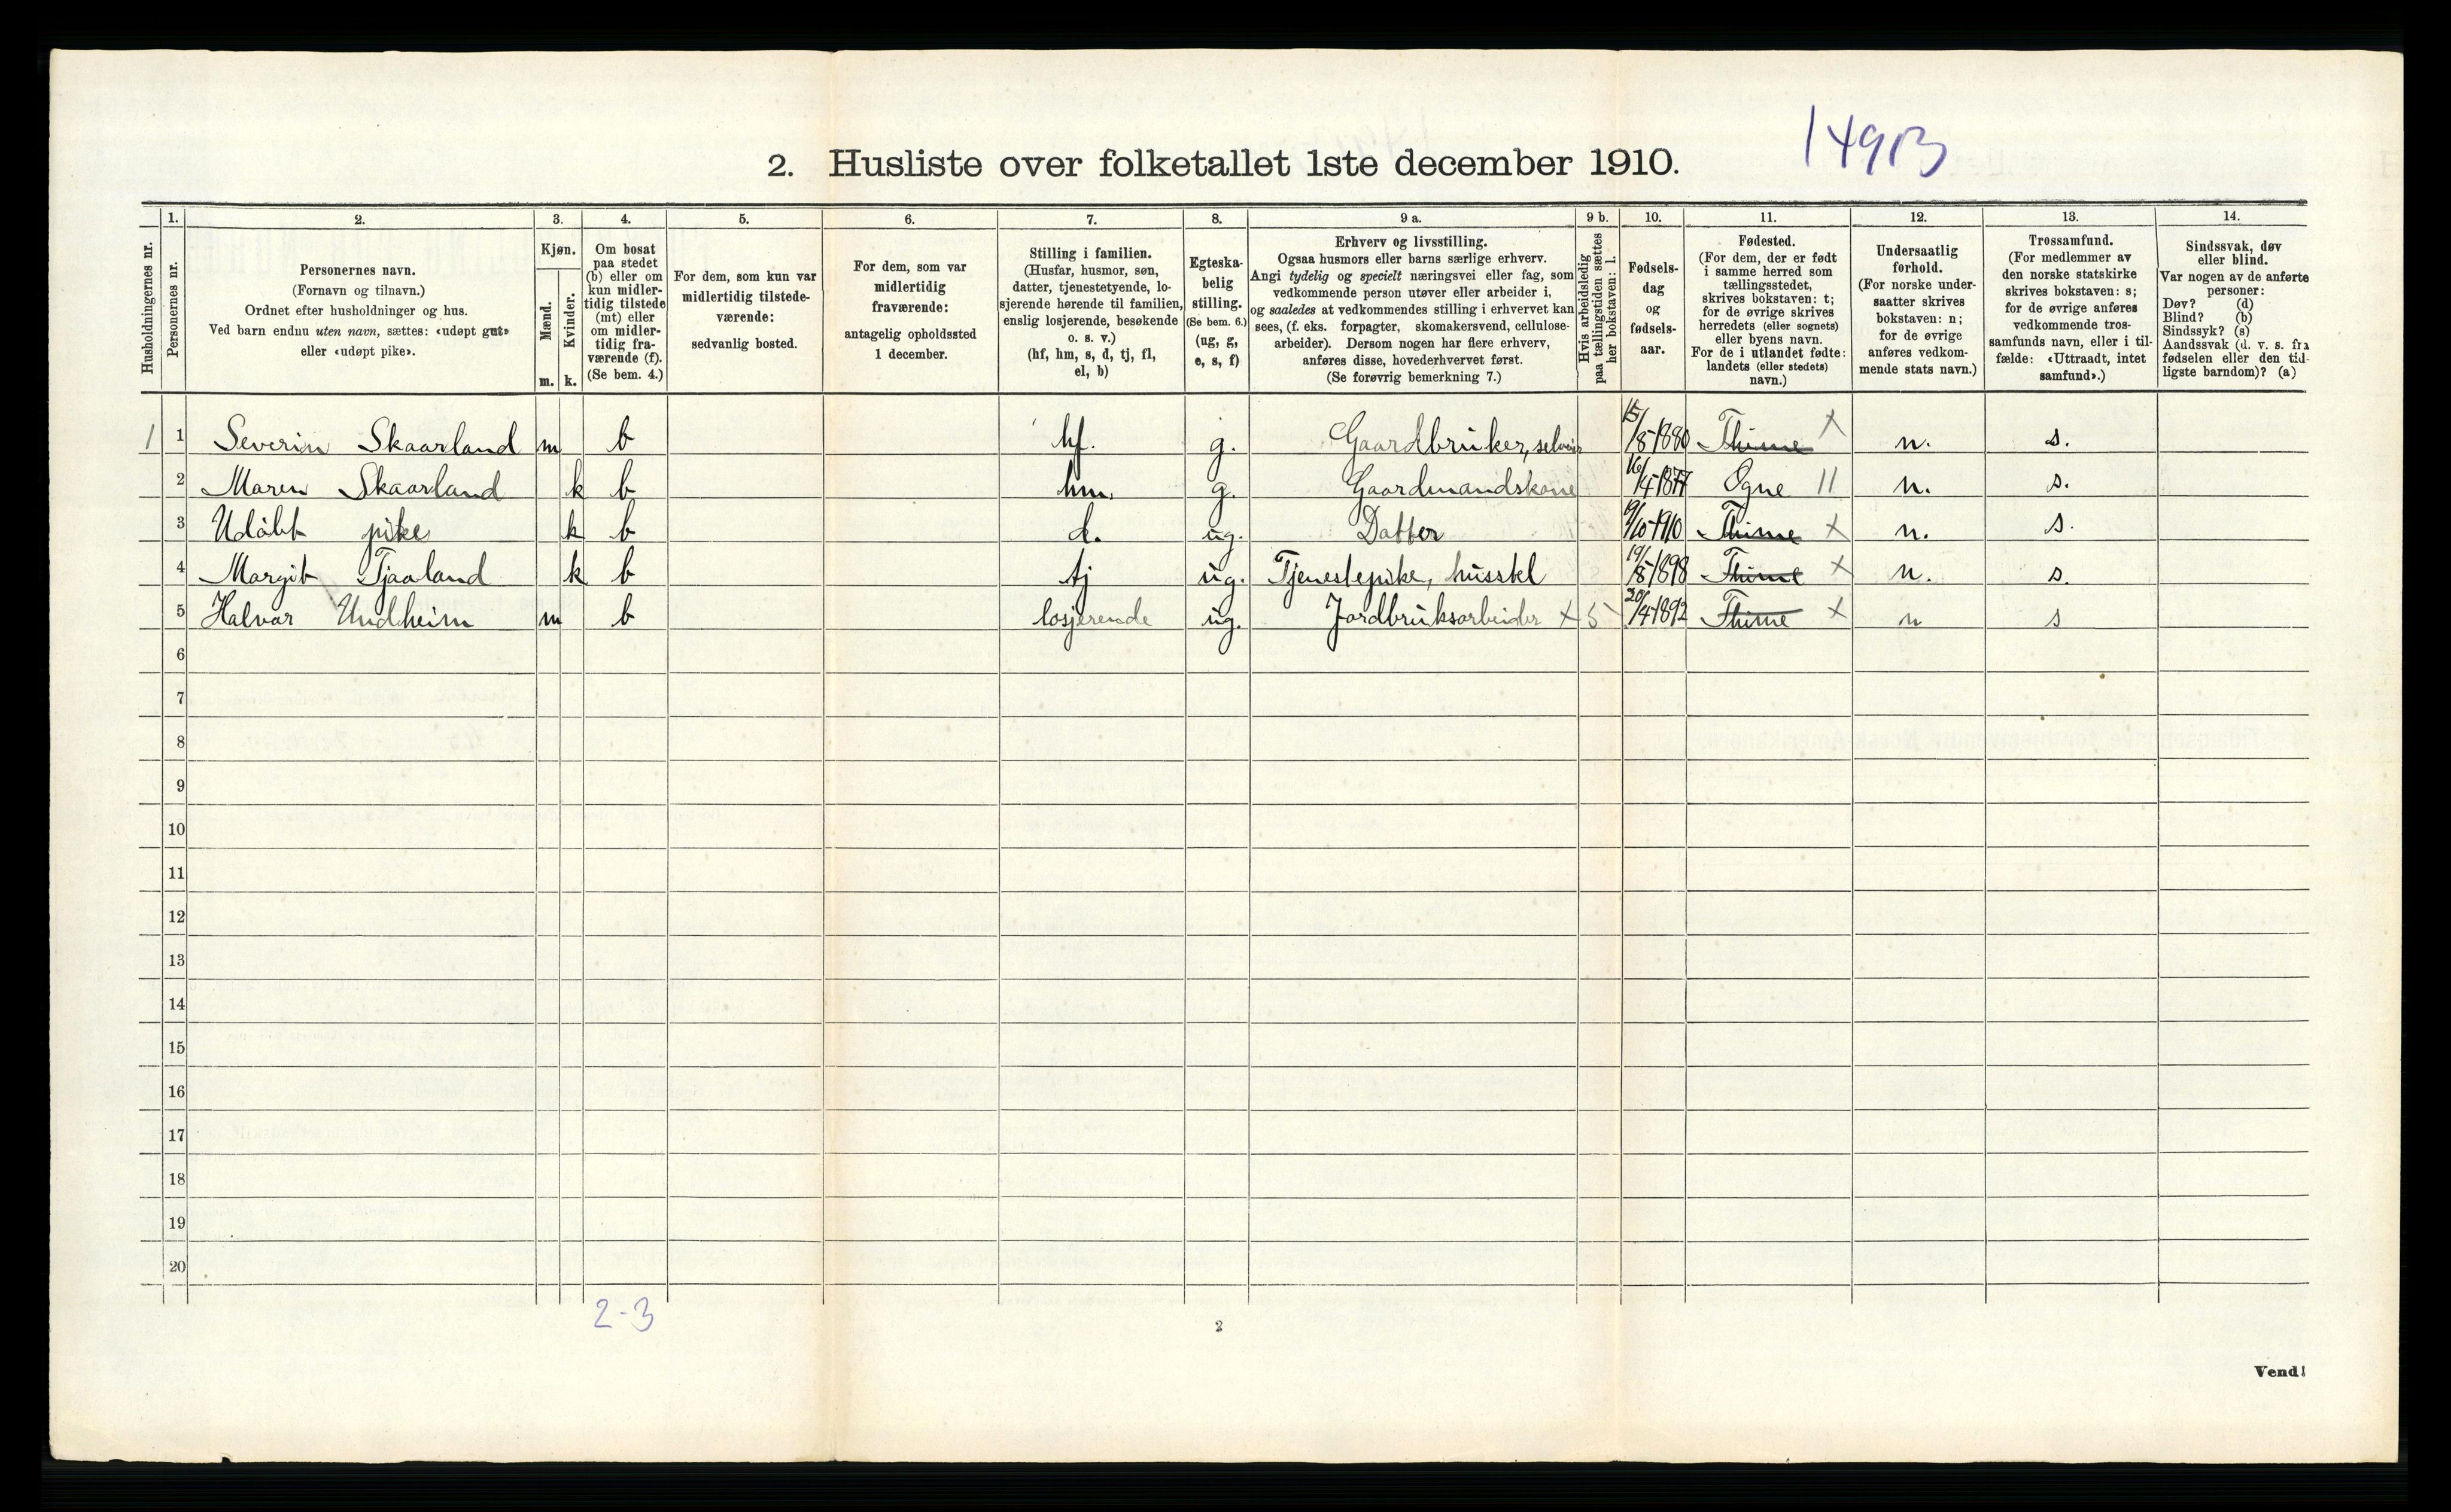 14913
2. Husliste over folketallet 1ste december 1910.
Husholdningernes nr.
1.
Personernes nr.
2.
Personernes navn.
(Fornavn og tilnavn.)
Ordnet efter husholdninger og hus.
Ved barn endnu uten navn, sættes: «udøpt gut»
eller «udøpt pike».
3.
Kjøn.
Mænd.
m.
Kvinder.
k.
4.
Om bosat
paa stedet
(b) eller om
kun midler-
tidig tilstede
(mt) eller
om midler-
tidig fra-
værende (f).
(Se bem. 4.)
5.
For dem, som kun var
midlertidig tilstede-
værende:
sedvanlig bosted.
6.
For dem, som var
midlertidig
fraværende:
antagelig opholdssted
1 december.
7.
Stilling i familien.
(Husfar, husmor, søn,
datter, tjenestetyende, lo-
sjerende hørende til familien,
enslig losjerende, besøkende
o. s. v.)
(hf, hm, s, d, tj, fl,
el, b)
8.
Egteska-
belig
stilling.
(Se bem. 6.)
(ug, g,
e, s, f)
9 a.
Erhverv og livsstilling.
Ogsaa husmors eller barns særlige erhverv.
Angi tydelig og specielt næringsvei eller fag, som
vedkommende person utøver eller arbeider i,
og saaledes at vedkommendes stilling i erhvervet kan
sees, (f. eks. forpagter, skomakersvend, cellulose-
arbeider). Dersom nogen har flere erhverv,
anføres disse, hovederhvervet først.
(Se forøvrig bemerkning 7.)
9 b.
Hvis arbeidsledig
paa tællingstiden sættes
her bokstaven: l.
10.
Fødsels-
dag
og
fødsels-
aar.
11.
Fødested.
(For dem, der er født
i samme herred som
tællingsstedet,
skrives bokstaven: t;
for de øvrige skrives
herredets (eller sognets)
eller byens navn.
For de i utlandet fødte:
landets (eller stedets)
navn.)
12.
Undersaatlig
forhold.
(For norske under-
saatter skrives
bokstaven: n;
for de øvrige
anføres vedkom-
mende stats navn.)
13.
Trossamfund.
(For medlemmer av
den norske statskirke
skrives bokstaven: s;
for de øvrige anføres
vedkommende tros-
samfunds navn, eller i til-
fælde: «Uttraadt, intet
samfund».)
14.
Sindssvak, døv
eller blind.
Var nogen av de anførte
personer:
Døv? (d)
Blind? (b)
Sindssyk? (s)
Aandssvak (d. v. s. fra
fødselen eller den tid-
ligste barndom)? (a)
1 1 Severin Skaarland m b hf. g. Gaardbruker, selveier 15/8-1880 Thime x n. s.
2 Maren Skaarland k b hm. g. Gaardmandskone 16/4-1877 Ogne 11 n. s.
3 Udöbt pike k b d. ug. Datter 9/10-1910 Thime x n. s.
4 Margit Tjaaland k b tj ug. Tjenestepike, husstel 19/8-1898 Thime x n. s.
5 Halvar Undheim m b losjerende ug. Jordbruksarbeider x 5 20/4-1892 Thime x n s
6
7
8
9
10
11
12
13
14
15
16
17
18
19
20
2-3
2
Vend!